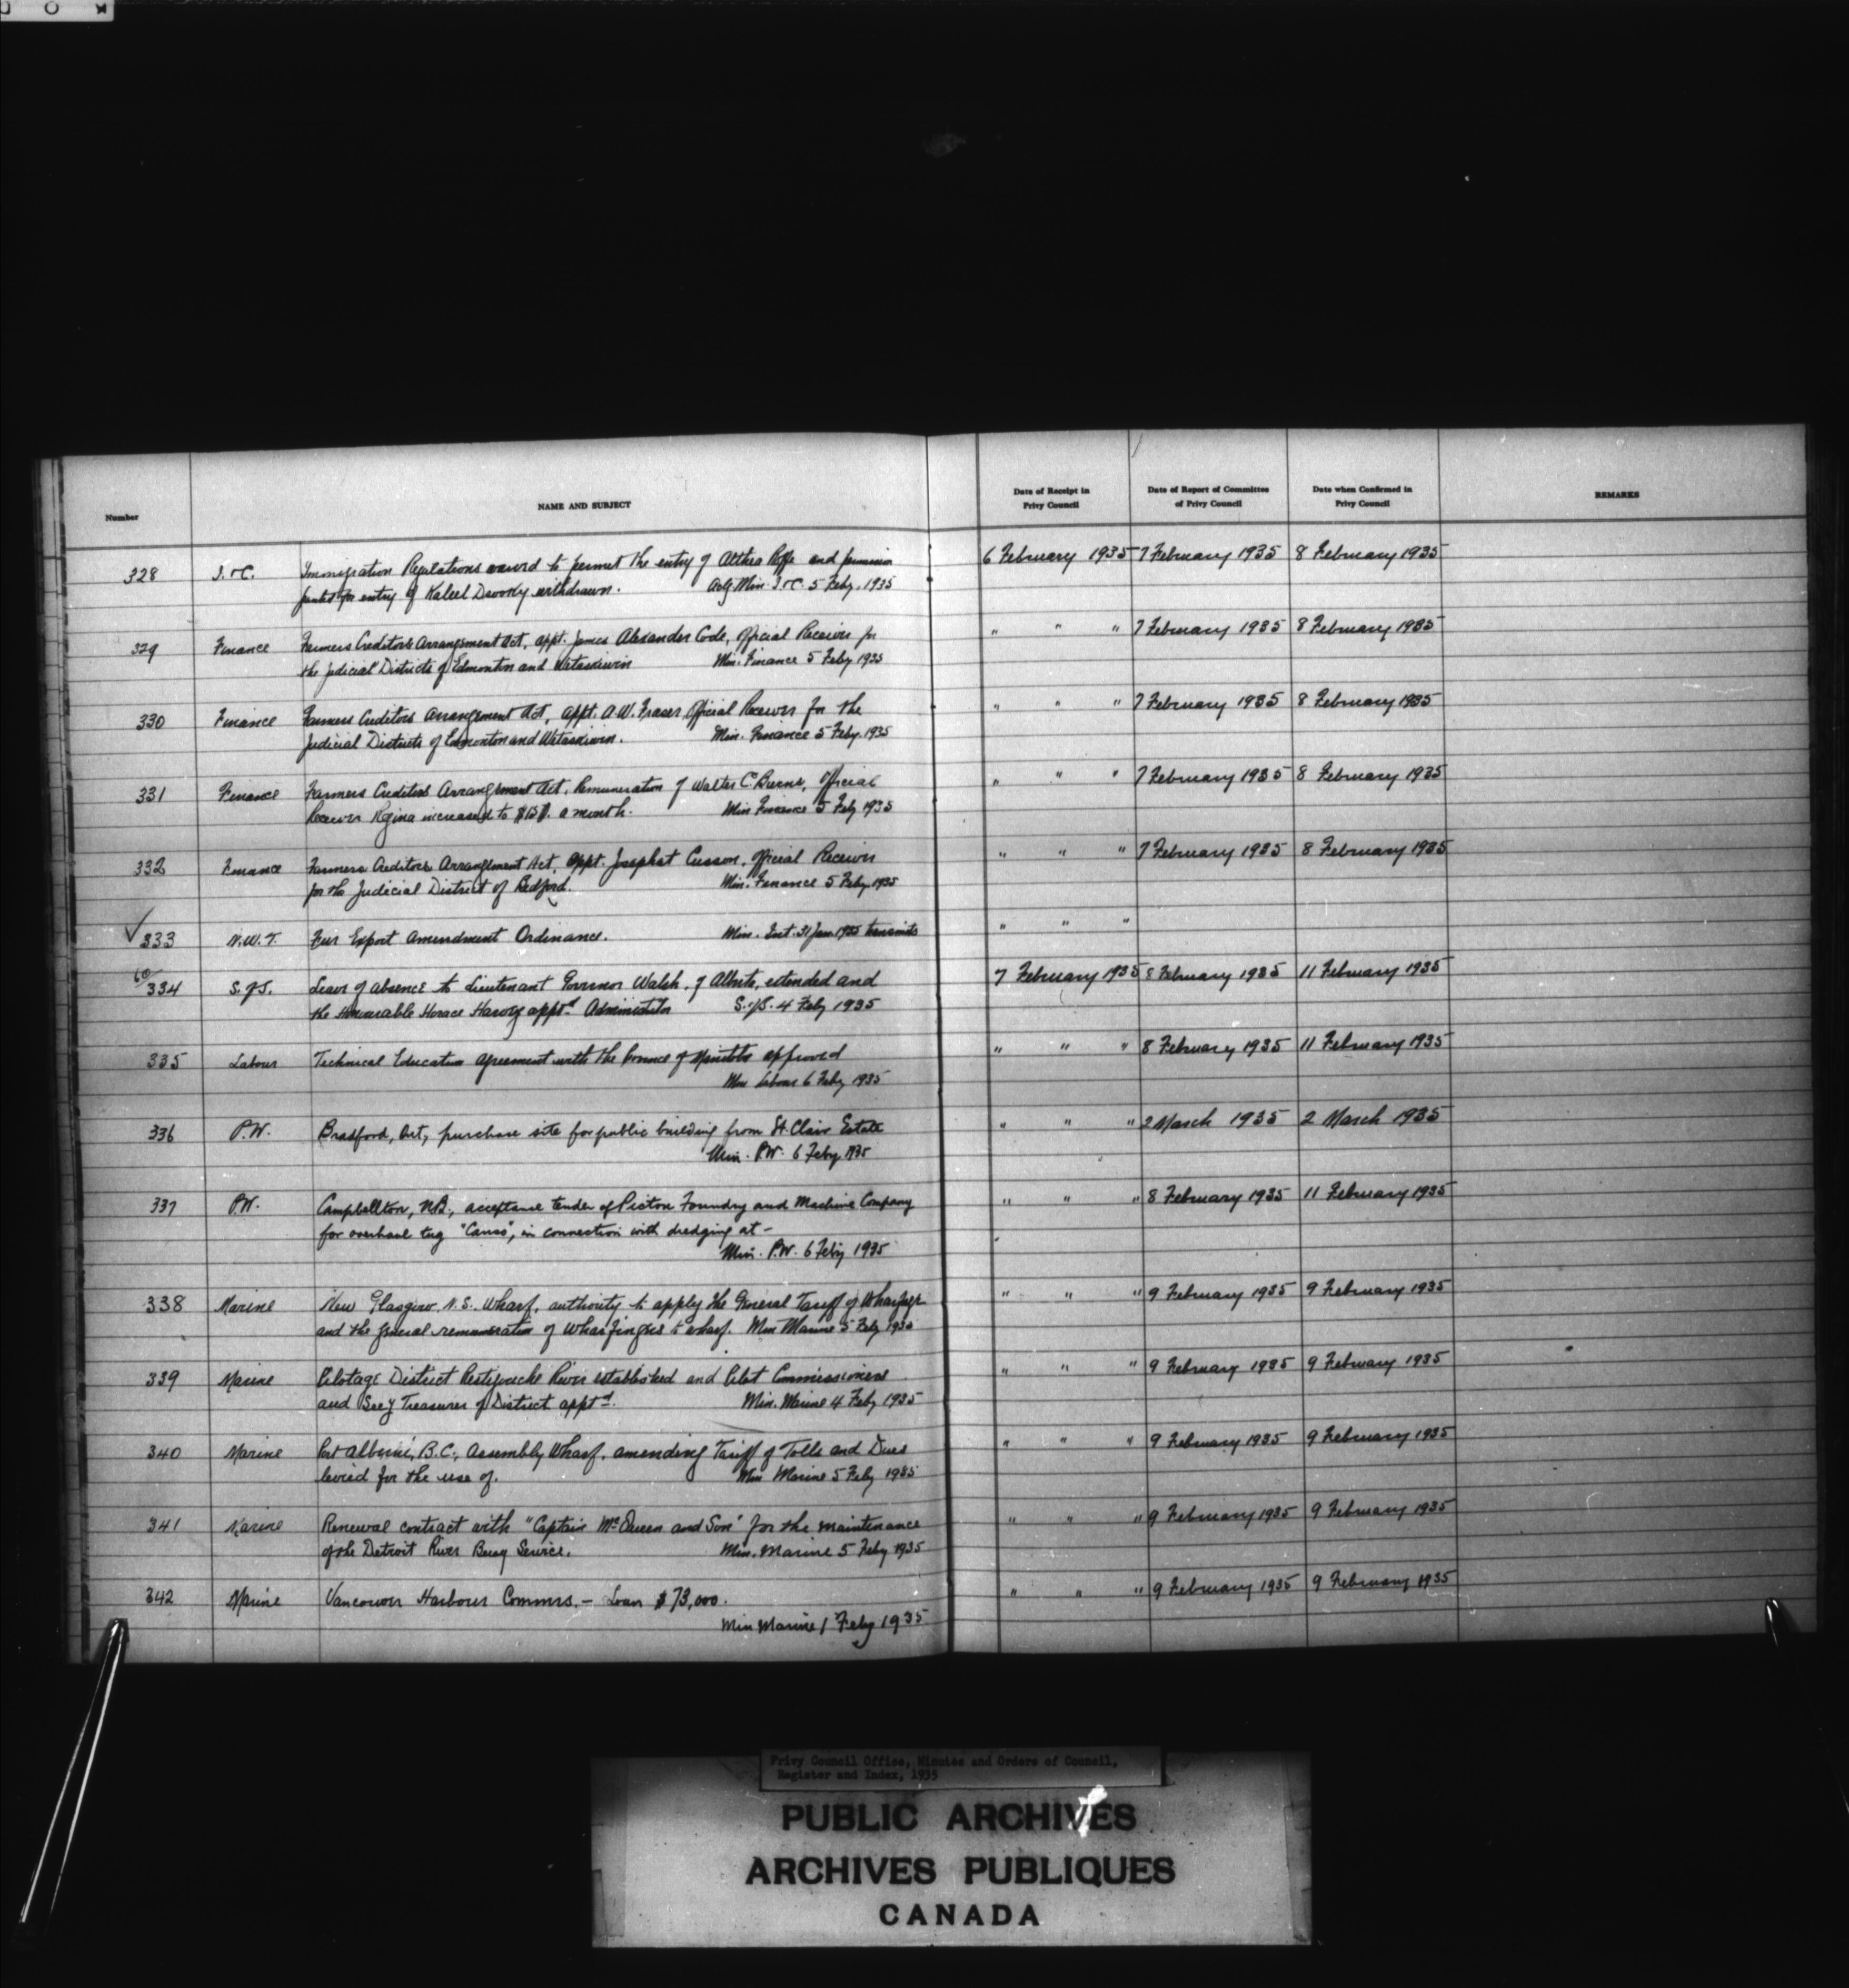 Number
NAME AND SUBJECT
Date of Receipt in Privy Council
Date of Report of Committee of Privy Council
Date when Confirmed in Privy Council
REMARKS
328 I. & C. Immigration Regulations waived to permit the entry of Althea and permission 6 February 1935 7 February 1935 8 February 1935
granted for entry of Kaleel withdrawn. Actg Min. I. & C. 5 Feby. 1935
329 Finance Farmers Creditors Arrangement Act, appt. James Alexander Code, Official Receiver for " " " 7 February 1935 8 February 1935
the Judicial Districts of Edmonton and Wetaskiwin Min. Finance 5 Feby 1935
330 Finance Farmers Creditors Arrangement Act, appt. A.W. Fraser Official Receiver for the " " " 7 February 1935 8 February 1935
Judicial Districts of Edmonton and Wetaskiwin. Min. Finance 5 Feby. 1935
331 Finance Farmers Creditors Arrangement Act, Remuneration of Walter C. Official " " " 7 February 1935 8 February 1935
Receiver Regina increased to a month. Min Finance 5 Feby 1935
332 Finance Farmers Creditors Arrangement Act, Appt. Josephat Cusson, Official Receiver " " " 7 February 1935 8 February 1935
for the Judicial District of Bedford. Min. Finance 5 Feby. 1935
333 N.W.T. Fur Export Amendment Ordinance. Min. Int. 31 Jan. 1935 transmits " " "
334 S. of S. Leave of absence to Lieutenant Governor Walsh, of Alberta, extended and 7 February 1935 8 February 1935 11 February 1935
the Honourable Horace Harvey apptd Administrator S. of S. 4 Feby 1935
335 Labour Technical Education Agreement with the Province of Manitoba approved " " " 8 February 1935 11 February 1935
Min Labour 6 Feby 1935
336 P.W. Bradford, Ont, purchase site for public building from St. Clair Estate " " " 2 March 1935 2 March 1935
Min. P.W. 6 Feby 1935
337 P.W. Campbellton, N.B., acceptance tender of Pictou Foundry and Machine Company " " " 8 February 1935 11 February 1935
for overhaul tug "Canso", in connection with dredging at -
Min. P.W. 6 Feby 1935
338 Marine New Glasgow, N.S. Wharf, authority to apply the General Tariff of Wharfage " " " 9 February 1935 9 February 1935
and the general remuneration of Wharfingers to wharf. Min Marine 5 Feby 1935
339 Marine Pilotage District Restigouche River established and Pilot Commissioners " " " 9 February 1935 9 February 1935
and Secy Treasurer of District apptd. Min. Marine 4 Feby 1935
340 Marine Port Alberni, B.C., Assembly Wharf, amending Tariff of Tolls and Dues " " " 9 February 1935 9 February 1935
levied for the use of. Min Marine 5 Feby 1935
341 Marine Renewal contract with "Captain McQueen and Son" for the maintenance " " " 9 February 1935 9 February 1935
of the Detroit River Buoy Service. Min. Marine 5 Feby 1935
342 Marine Vancouver Harbour Commrs. - Loan $73,000. " " " 9 February 1935 9 February 1935
Min Marine 1 Feby 1935
Privy Council Office, Minutes and Orders of Council,
Register and Index, 1935
PUBLIC ARCHIVES
ARCHIVES PUBLIQUES
CANADA